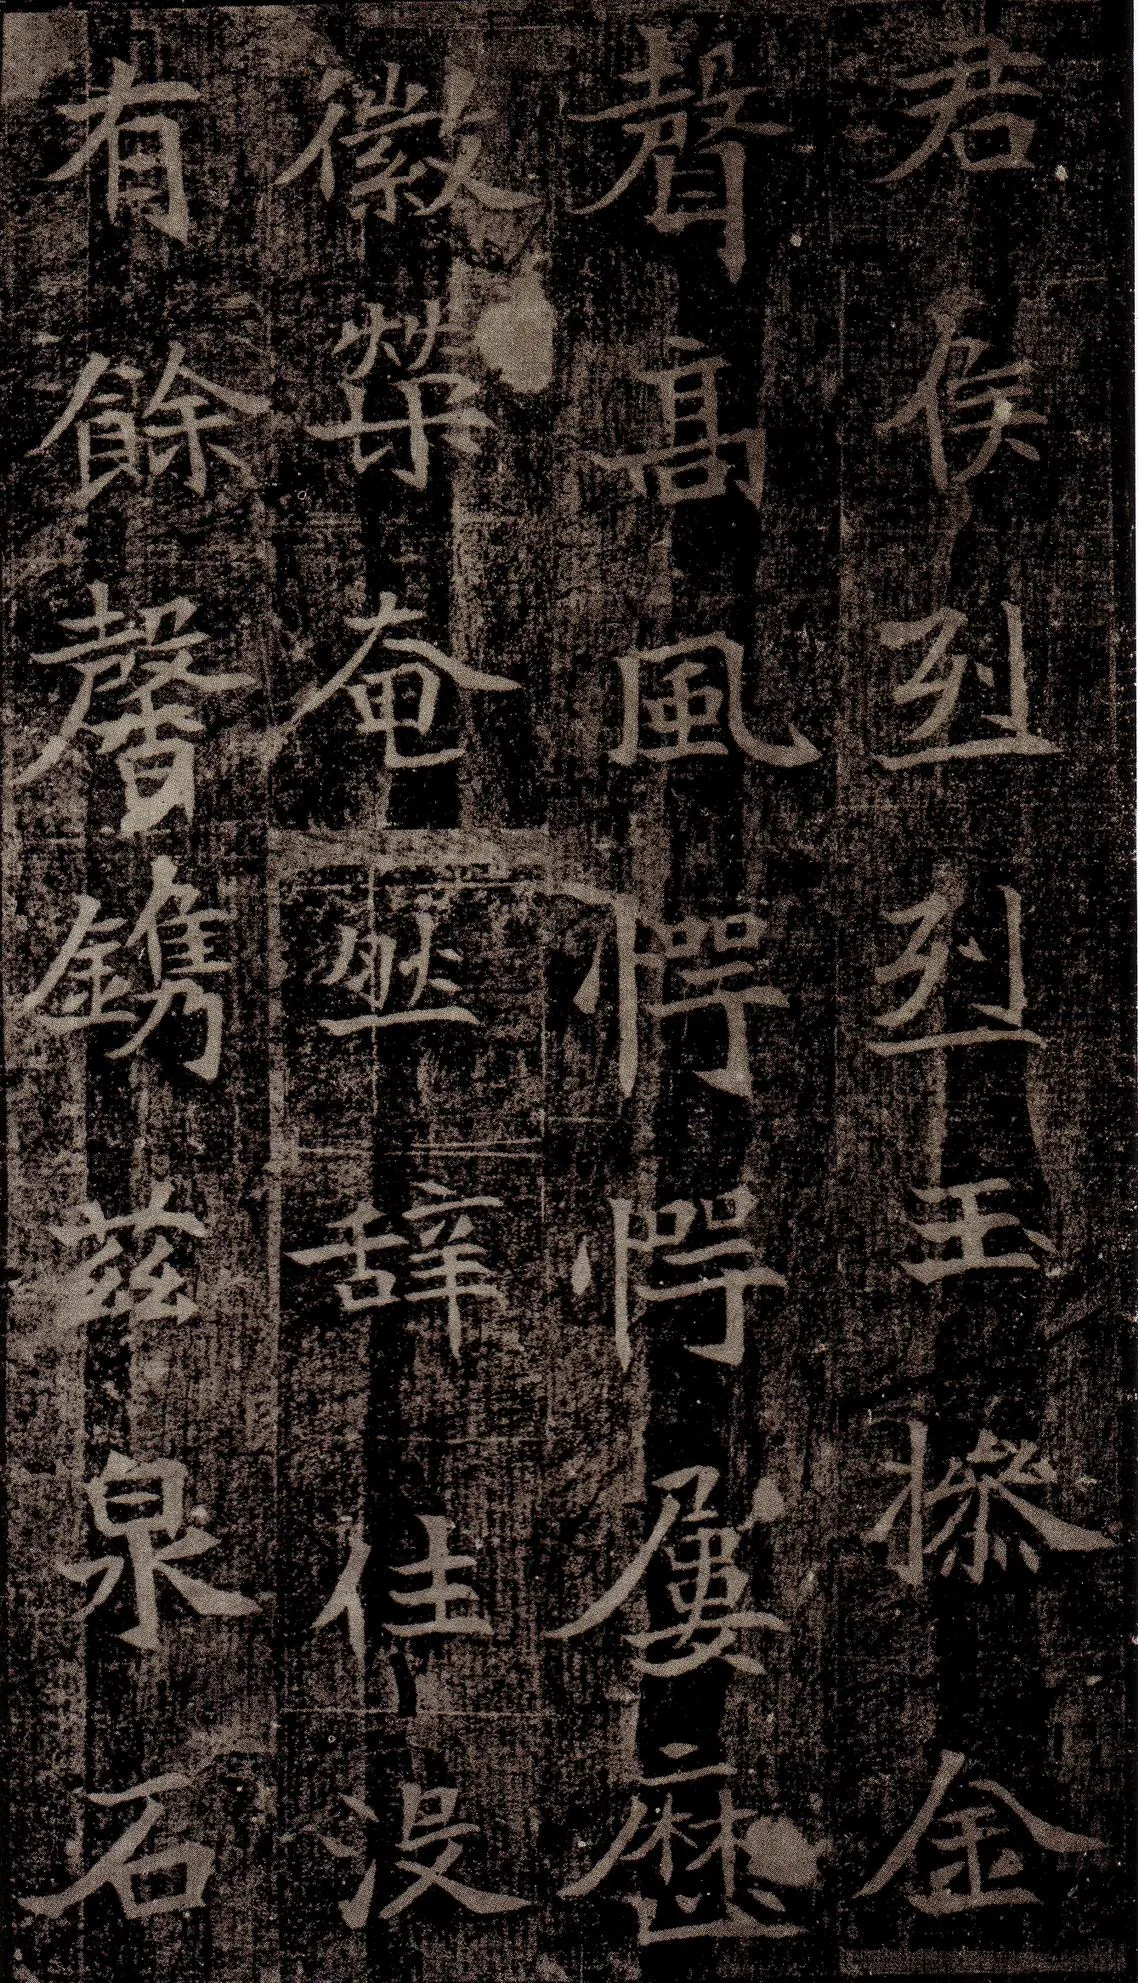 君侯烈烈玉操金
聲高風愕愕屢歷
徽榮奄然辭往没
有餘馨鐫茲泉石